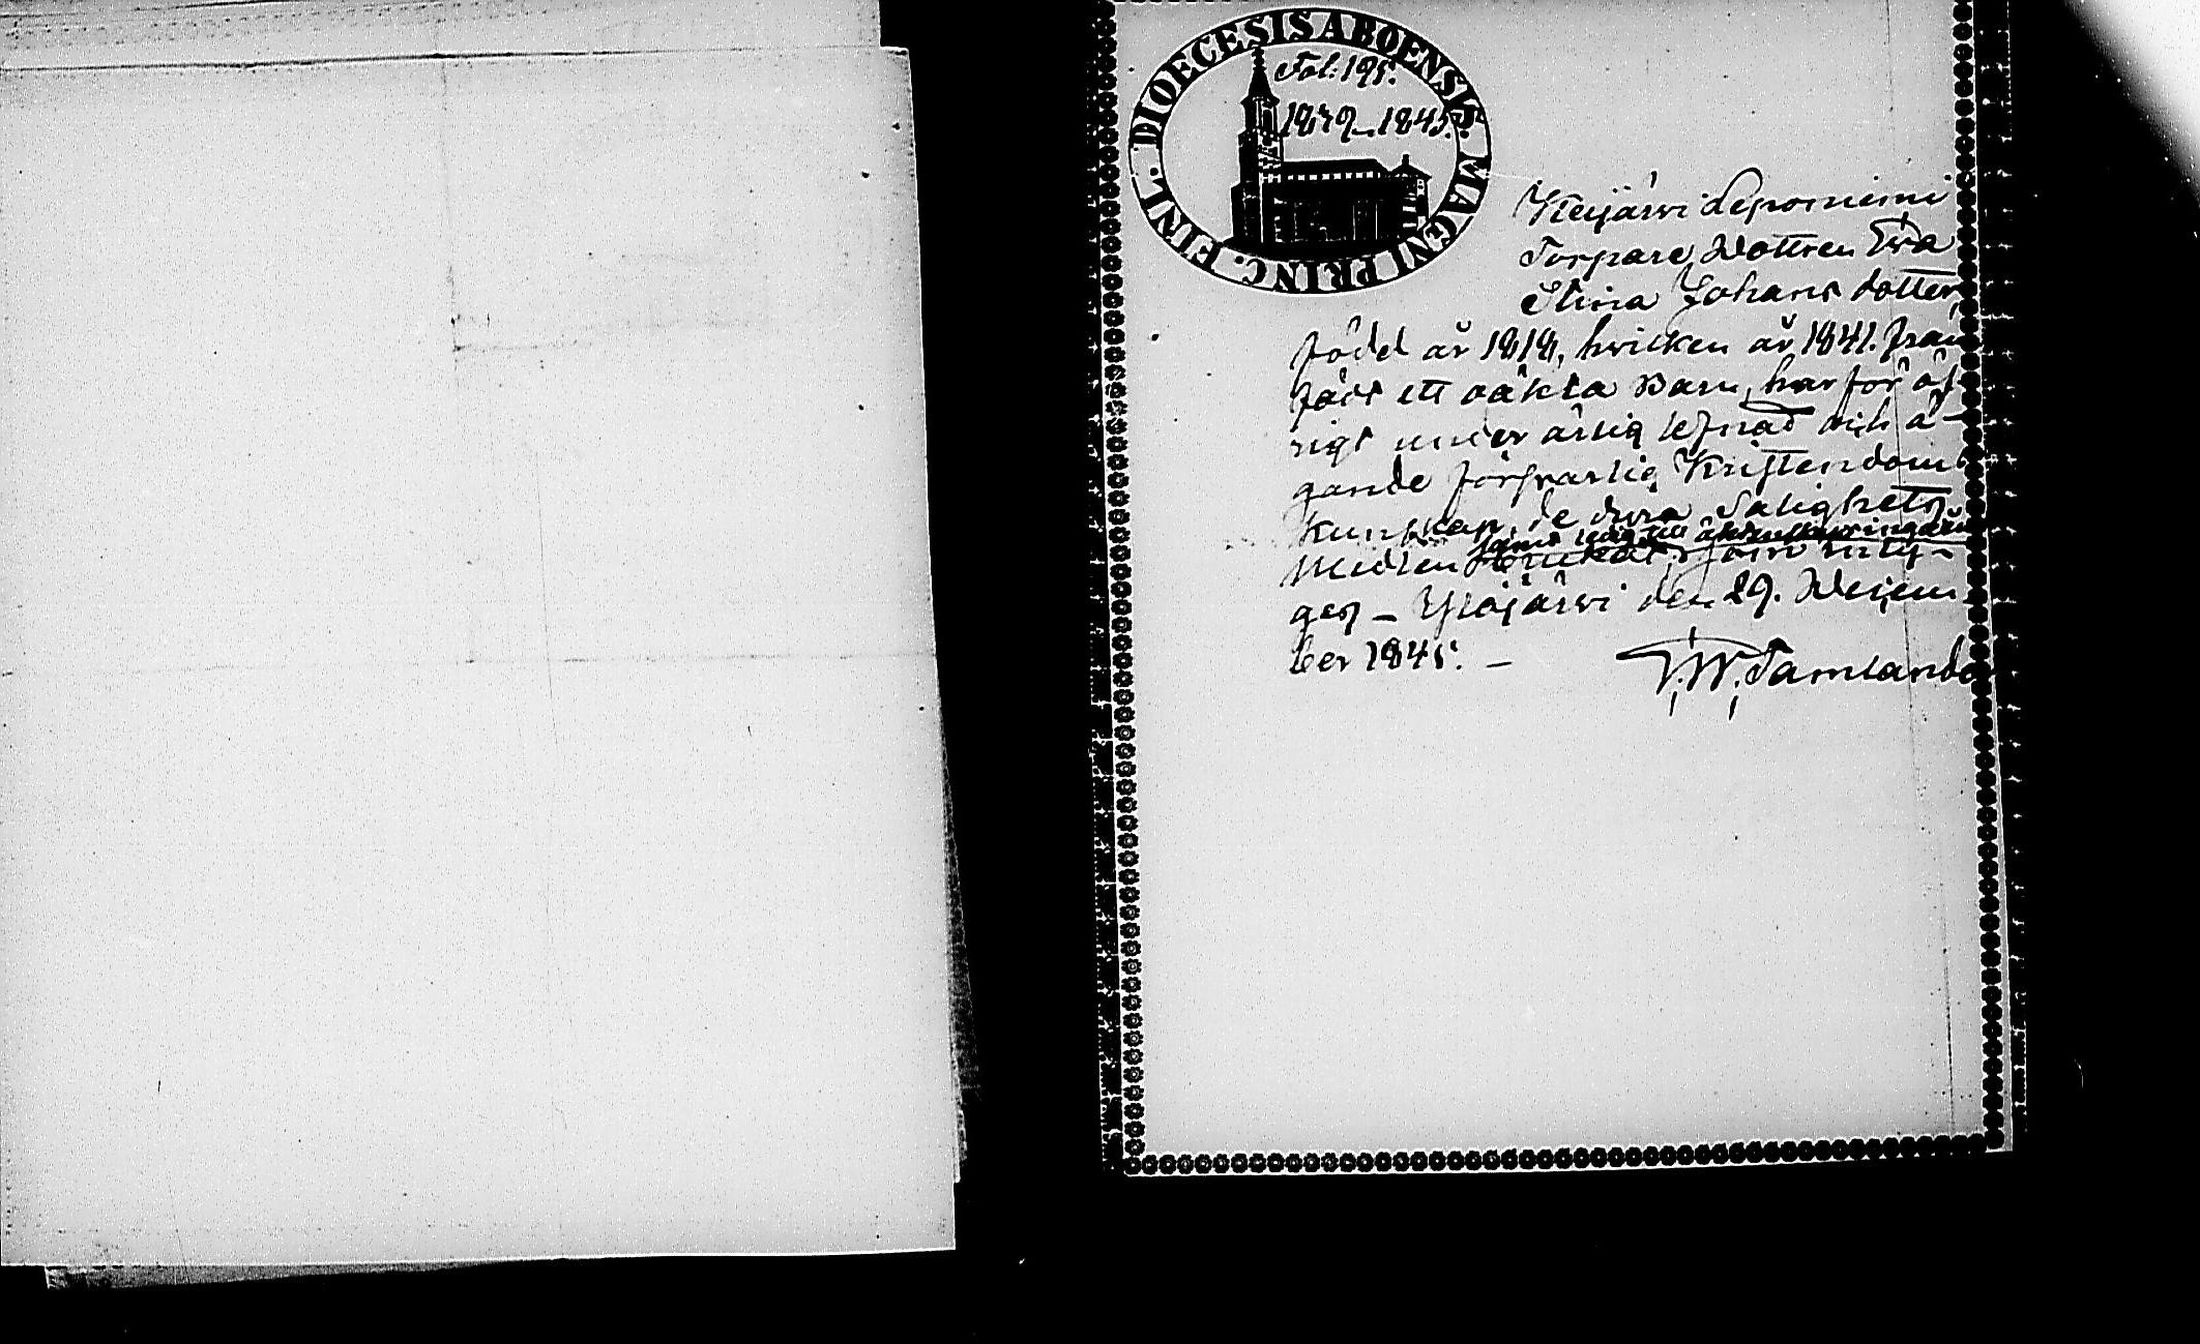 DIOECESIS ABOENSIS. MAGNI PRINC. FINL.
Fol: 195.
1839–1845.
Keijärvi Leponiemi
Torpare Dottren Eva
Stina Johans dotter,
född år 1818, hvilken år 1841. fram
födt ett oäkta Barn, har för öf-
rigt under ärlig lefnad och ä-
gande försvarlig Kristendoms
Kunskap, de dyra Salighets
samt ledig till äktenskap
Medlen som intÿ-
gas – Ylöjärvi den 29. Decem-
ber 1845. –
Tamlander